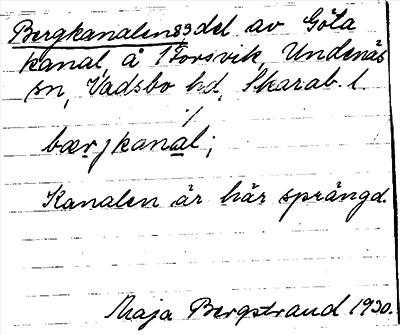 Bergkanalen 83 del av Göta
kanal, å Forsvik, Undenäs
sn, Vadsbo hd, Skarab. l.
bærjkanal;
Kanalen är här sprängd.
Maja Bergstrand 1930.